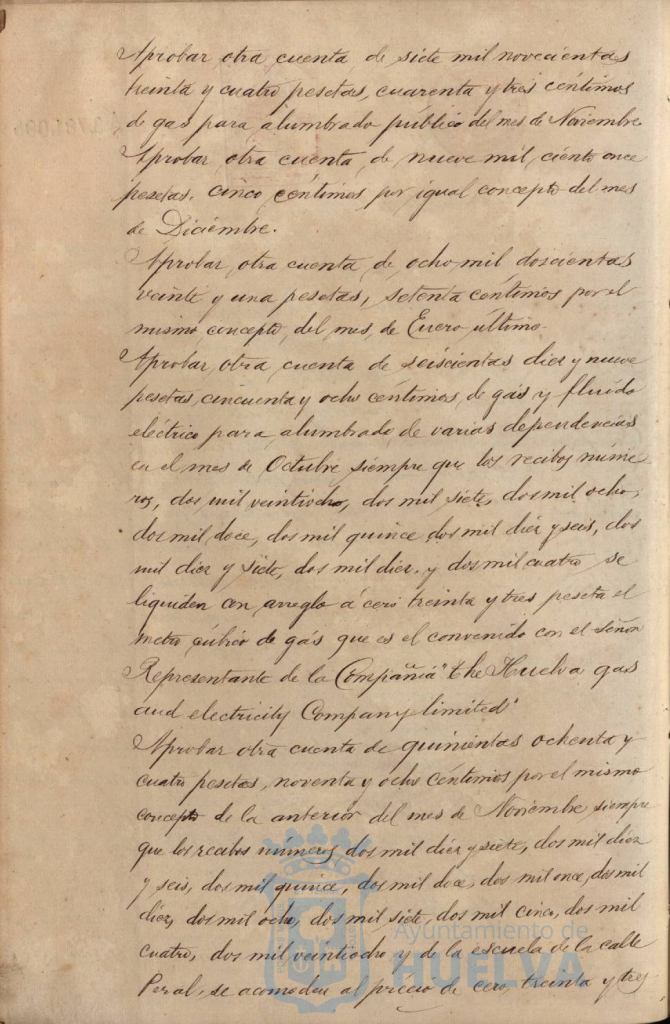 Aprobar otra cuenta de siete mil novecientas
treinta y cuatro pesetas, cuarenta y tres céntimos
de gas para alumbrado público del mes de Noviembre
Aprobar otra cuenta, de nueve mil, ciento once
pesetas, cinco céntimos por igual concepto del mes
de Diciembre.
Aprobar otra cuenta, de ocho mil doscientas
veinte y una pesetas, setenta céntimos por el
mismo concepto, del mes, de Enero último.
Aprobar, otra cuenta de seiscientas diez y nueve
pesetas, cincuenta y ocho céntimos, de gás y fluido
eléctrico para alumbrado de varias dependencias
en el mes de Octubre siempre que los recibos núme
ros, dos mil veintiocho, dos mil siete, dos mil ocho,
dos mil doce, dos mil quince dos mil diez y seis, dos
mil diez y siete, dos mil diez, y dos mil cuatro se
liquiden con arreglo á cero treinta y tres peseta el
metro cúbico de gás que es el convenido con el señor
Representante de la Compañia "the Huelva gas
and electricity Company limited"
Aprobar otra cuenta de quinientas ochenta y
cuatro pesetas, noventa y ocho céntimos por el mismo
concepto de la anterior del mes de Noviembre siempre
que los recibos números dos mil diez y siete, dos mil diez
y seis, dos mil quince, dos mil doce, dos mil once, dos mil
diez, dos mil ocho, dos mil siete, dos mil cinco, dos mil
cuatro, dos mil veintiocho y de la escuela de la calle
Peral, se acomoden al precio de cero, treinta y tres
Ayuntamiento de
HUELVA